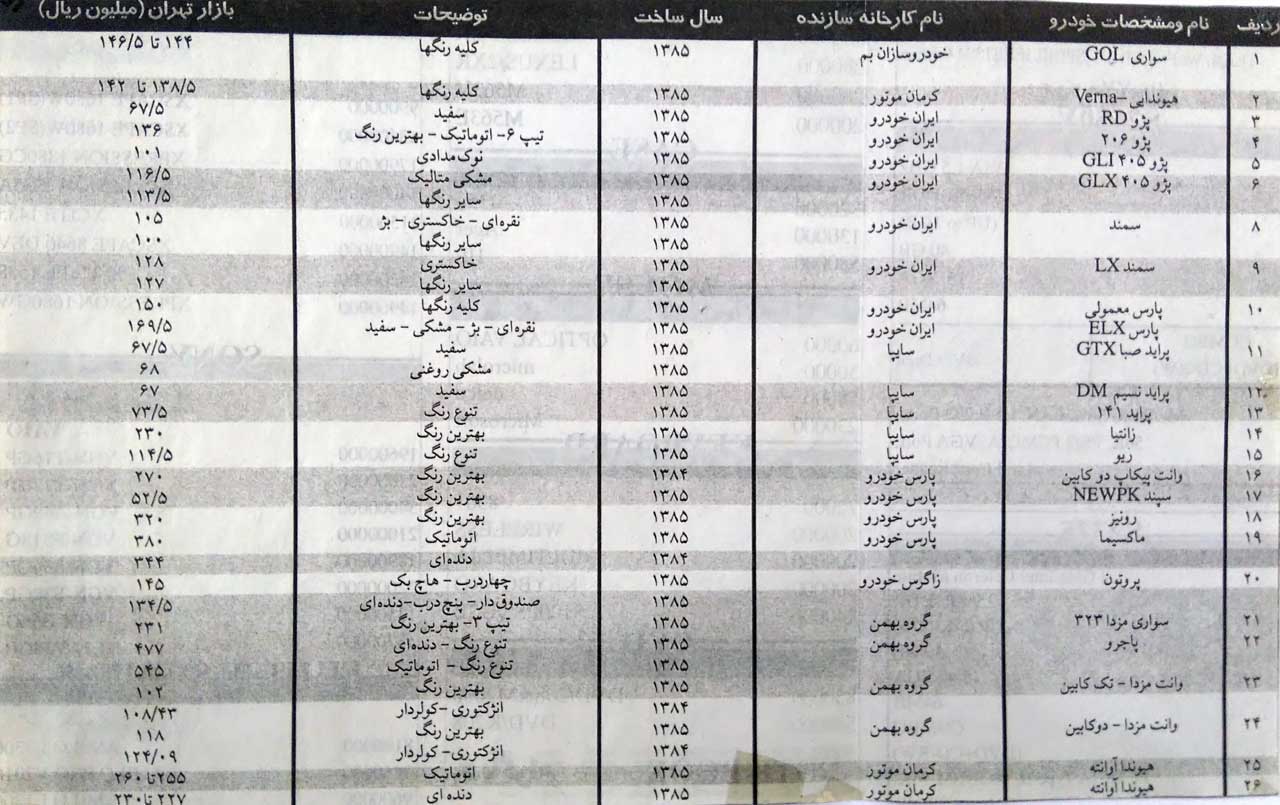 ردیف نام ومشخصات خودرو نام کارخانه سازنده سال ساخت توضیحات بازار تهران (میلیون ریال)
۱ سواری GOL خودروسازان بم ۱۳۸۵ کلیه رنگها ۱۴۴ تا ۱۴۶/۵
۲ هیوندایی –Verna کرمان موتور ۱۳۸۵ کلیه رنگها ۱۳۸/۵ تا ۱۴۲
۳ پژو RD ایران خودرو ۱۳۸۵ سفید ۶۷/۵
۴ پژو ۲۰۶ ایران خودرو ۱۳۸۵ تیپ ۶- اتوماتیک - بهترین رنگ ۱۳۶
۵ پژو ۴۰۵ GLI ایران خودرو ۱۳۸۵ نوک مدادی ۱۰۱
۶ پژو ۴۰۵ GLX ایران خودرو ۱۳۸۵ مشکی متالیک ۱۱۶/۵
۱۳۸۵ سایر رنگها ۱۱۳/۵
۸ سمند ایران خودرو ۱۳۸۵ نقره‌ای - خاکستری - بژ ۱۰۵
۱۳۸۵ سایر رنگها ۱۰۰
۹ سمند LX ایران خودرو ۱۳۸۵ خاکستری ۱۲۸
۱۳۸۵ سایر رنگها ۱۲۷
۱۰ پارس معمولی ایران خودرو ۱۳۸۵ کلیه رنگها ۱۵۰
پارس ELX ایران خودرو ۱۳۸۵ نقره‌ای - بژ - مشکی - سفید ۱۶۹/۵
۱۱ پراید صبا GTX سایپا ۱۳۸۵ سفید ۶۷/۵
۱۳۸۵ مشکی روغنی ۶۸
۱۲ پراید نسیم DM سایپا ۱۳۸۵ سفید ۶۷
۱۳ پراید ۱۴۱ سایپا ۱۳۸۵ تنوع رنگ ۷۳/۵
۱۴ زانتیا سایپا ۱۳۸۵ بهترین رنگ ۲۳۰
۱۵ ریو سایپا ۱۳۸۵ تنوع رنگ ۱۱۴/۵
۱۶ وانت پیکاپ دو کابین پارس خودرو ۱۳۸۴ بهترین رنگ ۲۷۰
۱۷ سپند NEWPK پارس خودرو ۱۳۸۵ بهترین رنگ ۵۲/۵
۱۸ رونیز پارس خودرو ۱۳۸۵ بهترین رنگ ۳۲۰
۱۹ ماکسیما پارس خودرو ۱۳۸۵ اتوماتیک ۳۸۰
۱۳۸۴ دنده‌ای ۳۴۴
۲۰ پروتون زاگرس خودرو ۱۳۸۵ چهاردرب - هاچ بک ۱۴۵
۱۳۸۵ صندوق دار- پنج درب-دنده‌ای ۱۳۴/۵
۲۱ سواری مزدا ۳۲۳ گروه بهمن ۱۳۸۵ تیپ ۳- بهترین رنگ ۲۳۱
۲۲ پاجرو گروه بهمن ۱۳۸۵ تنوع رنگ - دنده‌ای ۴۷۷
۱۳۸۵ تنوع رنگ - اتوماتیک ۵۴۵
۲۳ وانت مزدا - تک کابین گروه بهمن ۱۳۸۵ بهترین رنگ ۱۰۲
۱۳۸۴ انژکتوری -کولردار ۱۰۸/۴۳
۲۴ وانت مزدا - دوکابین گروه بهمن ۱۳۸۵ بهترین رنگ ۱۱۸
۱۳۸۴ انژکتوری-کولردار ۱۲۴/۰۹
۲۵ هیوندا آوانته کرمان موتور ۱۳۸۵ اتوماتیک ۲۵۵ تا ۲۶۰
۲۶ هیوندا آوانته کرمان موتور ۱۳۸۵ دنده ای ۲۲۷ تا ۲۳۰